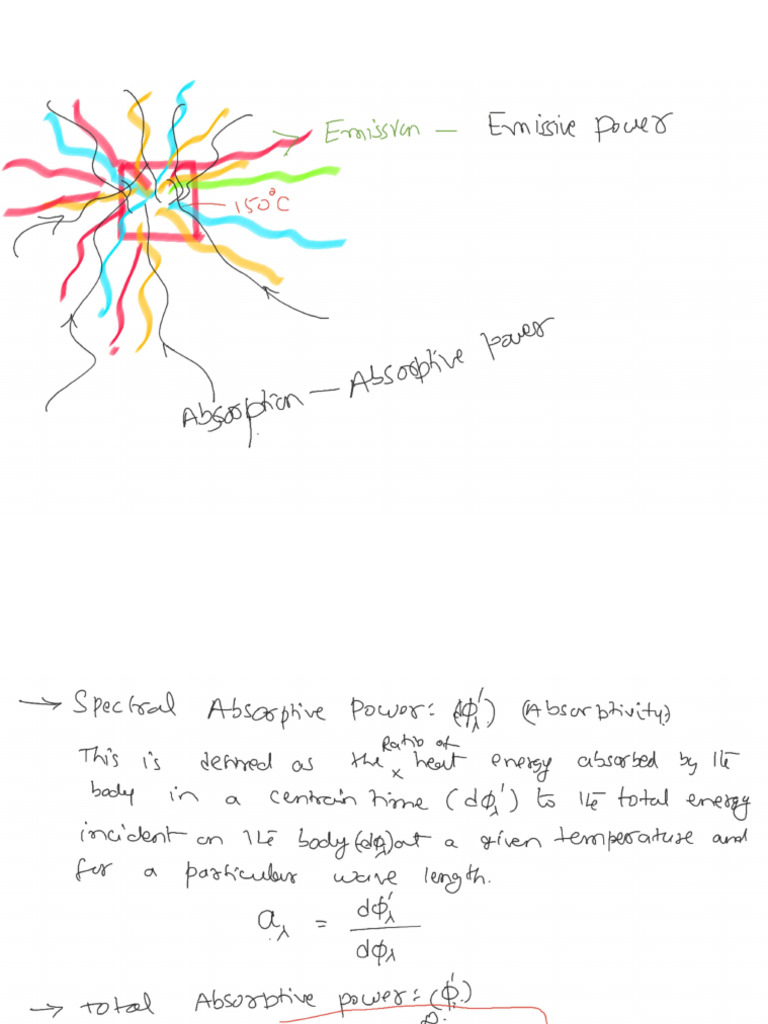 Emission — Emissive power
150°C
Absorption — Absorptive power
→ Spectral Absorptive Power: (dϕ'λ) (Absorbtivity)
This is defined as the Ratio of heat energy absorbed by the
body in a centrain time (dϕ'λ) to the total energy
incident on the body (dϕλ) at a given temperature and
for a particular wave length.
aλ = dϕ'λ / dϕλ
→ total Absorbtive power: (ϕ')